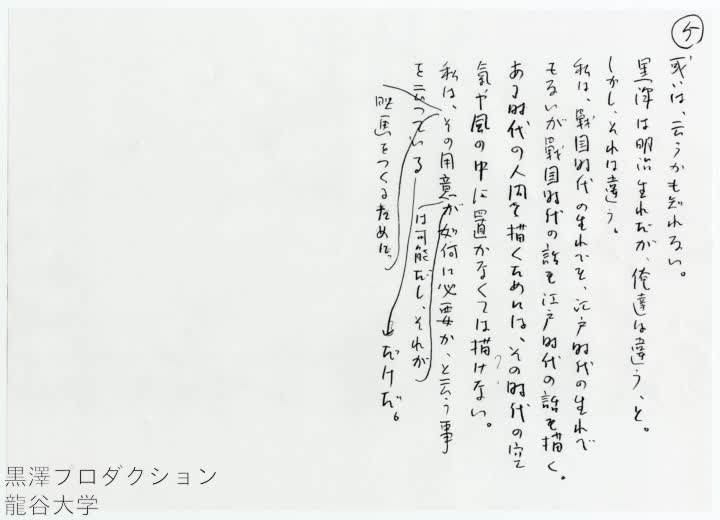 ケ
或いは、云うかも知れない。
黒澤は明治生れだが、俺達は違う、と。
しかし、それは違う。
私は、戦国時代の生れでも、江戸時代の生れで
もないが戦国時代の話も江戸時代の話も描く。
ある時代の人間を描くためには、その時代の空
気や風の中に置かなくては描けない。
私は、その用意が如何に必要か、と云う事
は可能だし、それが
を云っている
だけだ。
映画をつくるために、
黒澤プロダクション
龍谷大学